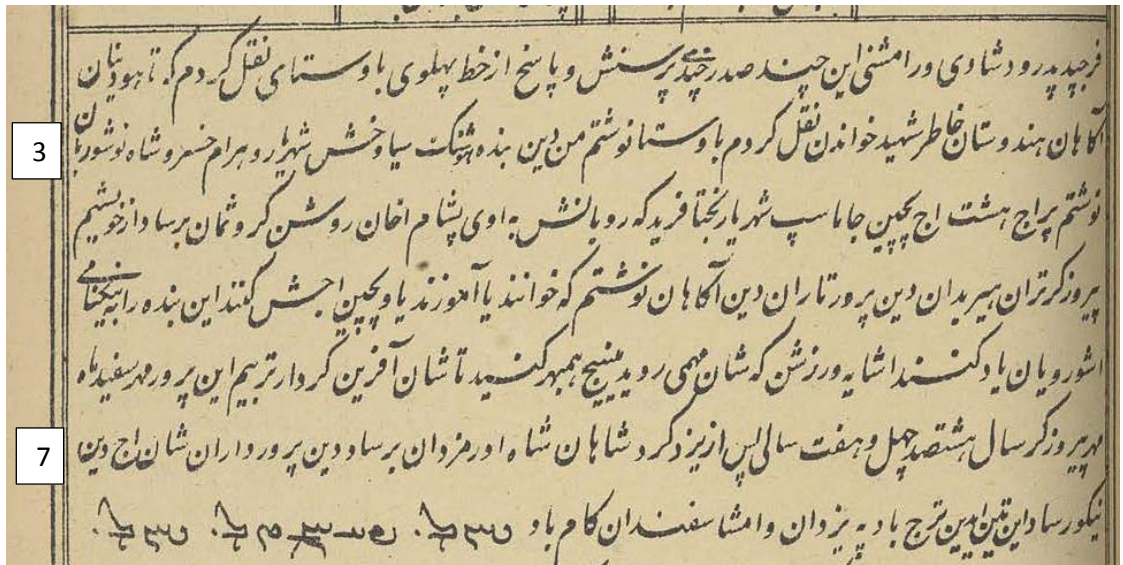 فرجپد پدرود شادی ورامشنی این چند صد در چیدمی پرسنش و پاسخ از خط پهلوی باوستای نقل کردم که تا هودینان
3 آگاهان هندوستان خاطر شهید خواندن نقل کردم باوستا نوشتم من دین بنده هوشنک سیاوخش شهریار و بهرام خسرو شاه نوشوربان
نوشتم پراج هشت اج پچین جاماسپ شهریار بختافرید که روبانش به اوی پشام اخان روشن کروثمان برساد از خویشیم
پیروزکرتران هیربدان دین پرورتاران دین آگاهان نوشتم که خوانند یا آموزند یا و پچین اجش کنند این بنده را به نیکنامی
اشورویان یاد کنند اشایه ورزشن که شان مهمی روید مینیج همبهر کنید تا شان آفرین کردارتر بیم این پرور مهر سفید ماه
7 مهر پیروزکر سال هشتصد چهل و هفت سالی پس از یزدکرد شاهان شاه اورمزدان برساد دین پرورداران شان اج دین
نیکو رساد این تین ایدین ترج باد په یزدان و امشاسفندان کام باد